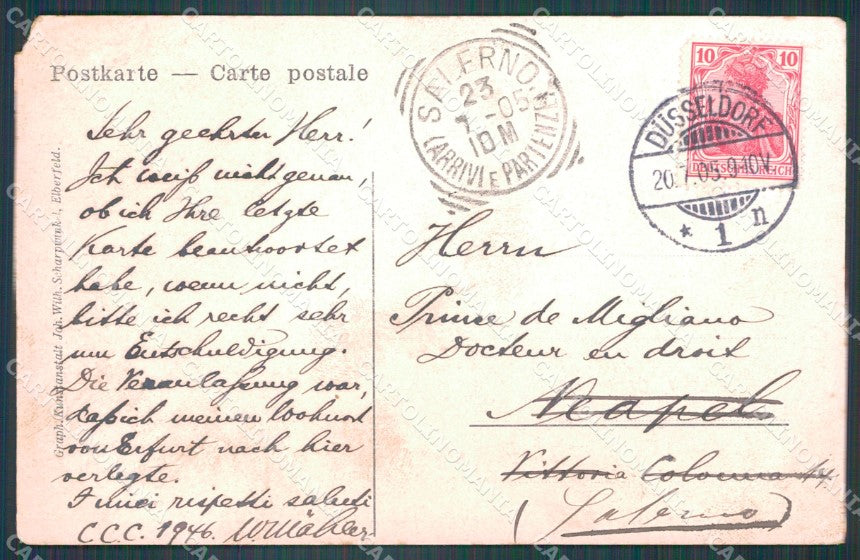 Postkarte — Carte postale
SALERNO
23
7-05
10M
(ARRIVI E PARTENZE)
10 10
DEUTSCHES REICH
DÜSSELDORF
20.7.05.9-10V.
* 1 n
Sehr geehrter Herr!
Ich weiß nicht genau,
ob ich Ihre letzte
Karte beantwortet
habe, wenn nicht,
bitte ich recht sehr
um Entschuldigung.
Die Veranlaßung war,
daß ich meinen Wohnort
von Erfurt nach hier
verlegte.
I miei rispetti saluti
C.C.C. 1946.
Herrn
Prince de Migliano
Docteur en droit
Neapel
Vittoria Colonna 14
(Salerno)
Graph. Kunstanstalt Joh. Wilh. Scharpwinkel, Elberfeld.
CARTOLINOMANIA